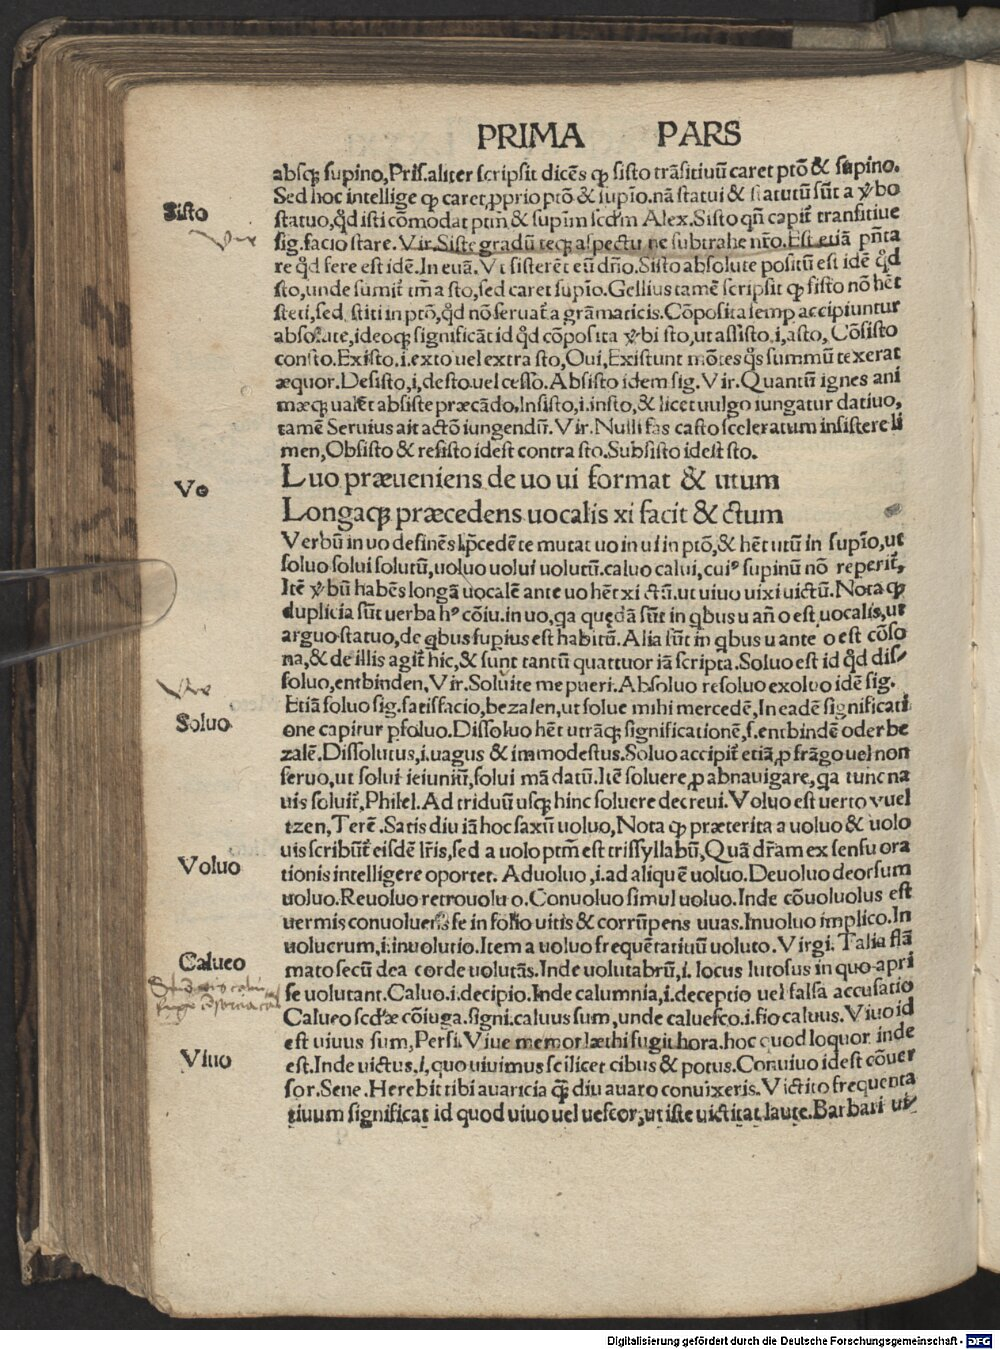 PRIMA PARS
absqꝫ supino, Pris. aliter scripsit dicēs ꝙ sisto trāsitiuū caret ptō & supino.
Sed hoc intellige ꝙ caret ꝓprio ptō & supīo. nā statui & statutū sūt a ꝟbo
Sisto
statuo, qd̓ isti cōmodat ptm̄ & supīm scdm̄ Alex. Sisto qn̄ capit̄ transitiue
sig. facio stare. Vir. Siste gradū teqꝫ aspectu ne subtrahe nr̄o. Est etiā pn̄ta
re qd̓ fere est idē. In euā. Vt sisterēt eū dn̄o. Sisto absolute positū est idē qd̓
sto, unde sumit̄ tm̄ a sto, sed caret supīo. Gellius tamē scripsit ꝙ sisto nō hēt
steti, sed stiti in ptō, qd̓ nō seruat̄ a grāmaticis. Cōposita semp accipiuntur
absolute, ideoqꝫ significāt id qd̓ cōposita ꝟbi sto, ut assisto, i, asto, Cōsisto
consto. Existo. i. exto uel extra sto, Oui, Existunt mōtes q̊s summū texerat
æquor. Desisto, i, desto uel cesso. Absisto idem sig. Vir. Quantū ignes ani
mæqꝫ ualēt absiste præcādo. Insisto, i. insto, & licet uulgo iungatur datiuo,
tamē Seruius ait actō iungendū. Vir. Nulli fas casto sceleratum insistere li
men, Obsisto & resisto idest contra sto. Subsisto idest sto.
Vo
Luo præueniens de uo ui format & utum
Longaqꝫ præcedens uocalis xi facit & ctum
Verbū in uo definēs p̄cedēte mutat uo in ui in ptō, & hēt utū in supīo, ut
soluo solui solutū, uoluo uolui uolutū. caluo calui, cuiꝰ supinū nō reperit̄,
Itē ꝟbū habēs longā uocalē ante uo hēt xi ctū. ut uiuo uixi uictū. Nota ꝙ
duplicia sūt uerba hꝰ cōiu. in uo, qa quędā sūt in qbus u añ o est uocalis, ut
arguo statuo, de qbus supius est habitū. Alia sūt in qbus u ante o est cōso
na, & de illis agit̄ hic, & sunt tantū quattuor iā scripta. Soluo est id qd̓ dis/
soluo, entbinden, Vir. Soluite me pueri. Absoluo resoluo exoluo idē sig.
Soluo
Etiā soluo sig. satisfacio, bezalen, ut solue mihi mercedē, In eadē significati
one capitur psoluo. Dissoluo hēt utrāqꝫ significationē, s. entbindē oder be
zalē. Dissolutus, i. uagus & immodestus. Soluo accipit̄ etiā, ꝓ frāgo uel non
seruo, ut solui ieiuniū, solui mādatū. Itē soluere, ꝓ abnauigare, qa tunc na
uis soluit̄, Philel. Ad triduū usqꝫ hinc soluere decreui. Voluo est uerto vuel
tzen, Terē. Satis diu iā hoc saxū uoluo, Nota ꝙ præterita a uoluo & uolo
Voluo
uis scribūt̄ eisdē lr̄is, sed a uolo ptm̄ est trissyllabū, Quā dr̄am ex sensu ora
tionis intelligere oportet. Aduoluo, i. ad aliquē uoluo. Deuoluo deorsum
uoluo. Reuoluo retrouoluo. Conuoluo simul uoluo. Inde cōuoluolus est
uermis conuoluens se in folio uitis & corrūpens uuas. Inuoluo implico. In
uolucrum, i. inuolutio. Item a uoluo frequētatiuū uoluto. Virgi. Talia flā
Calueo
mato secū dea corde uolutās. Inde uolutabrū, i. locus lutosus in quo apri
se uolutant. Caluo. i. decipio. Inde calumnia, i. deceptio uel falsa accusatio
Calueo scdæ cōiuga. signi. caluus sum, unde caluesco. i. fio caluus. Viuo id
Viuo
est uiuus sum, Persi. Viue memor læthi fugit hora. hoc quod loquor inde
est. Inde uictus, i, quo uiuimus scilicet cibus & potus. Conuiuo idest cōuer
sor. Sene. Herebit tibi auaricia qꝫ̄ diu auaro conuixeris. Victito frequenta
tiuum significat id quod uiuo uel uescor, ut iste uictitat laute. Barbari ui/
Digitalisierung gefördert durch die Deutsche Forschungsgemeinschaft - DFG